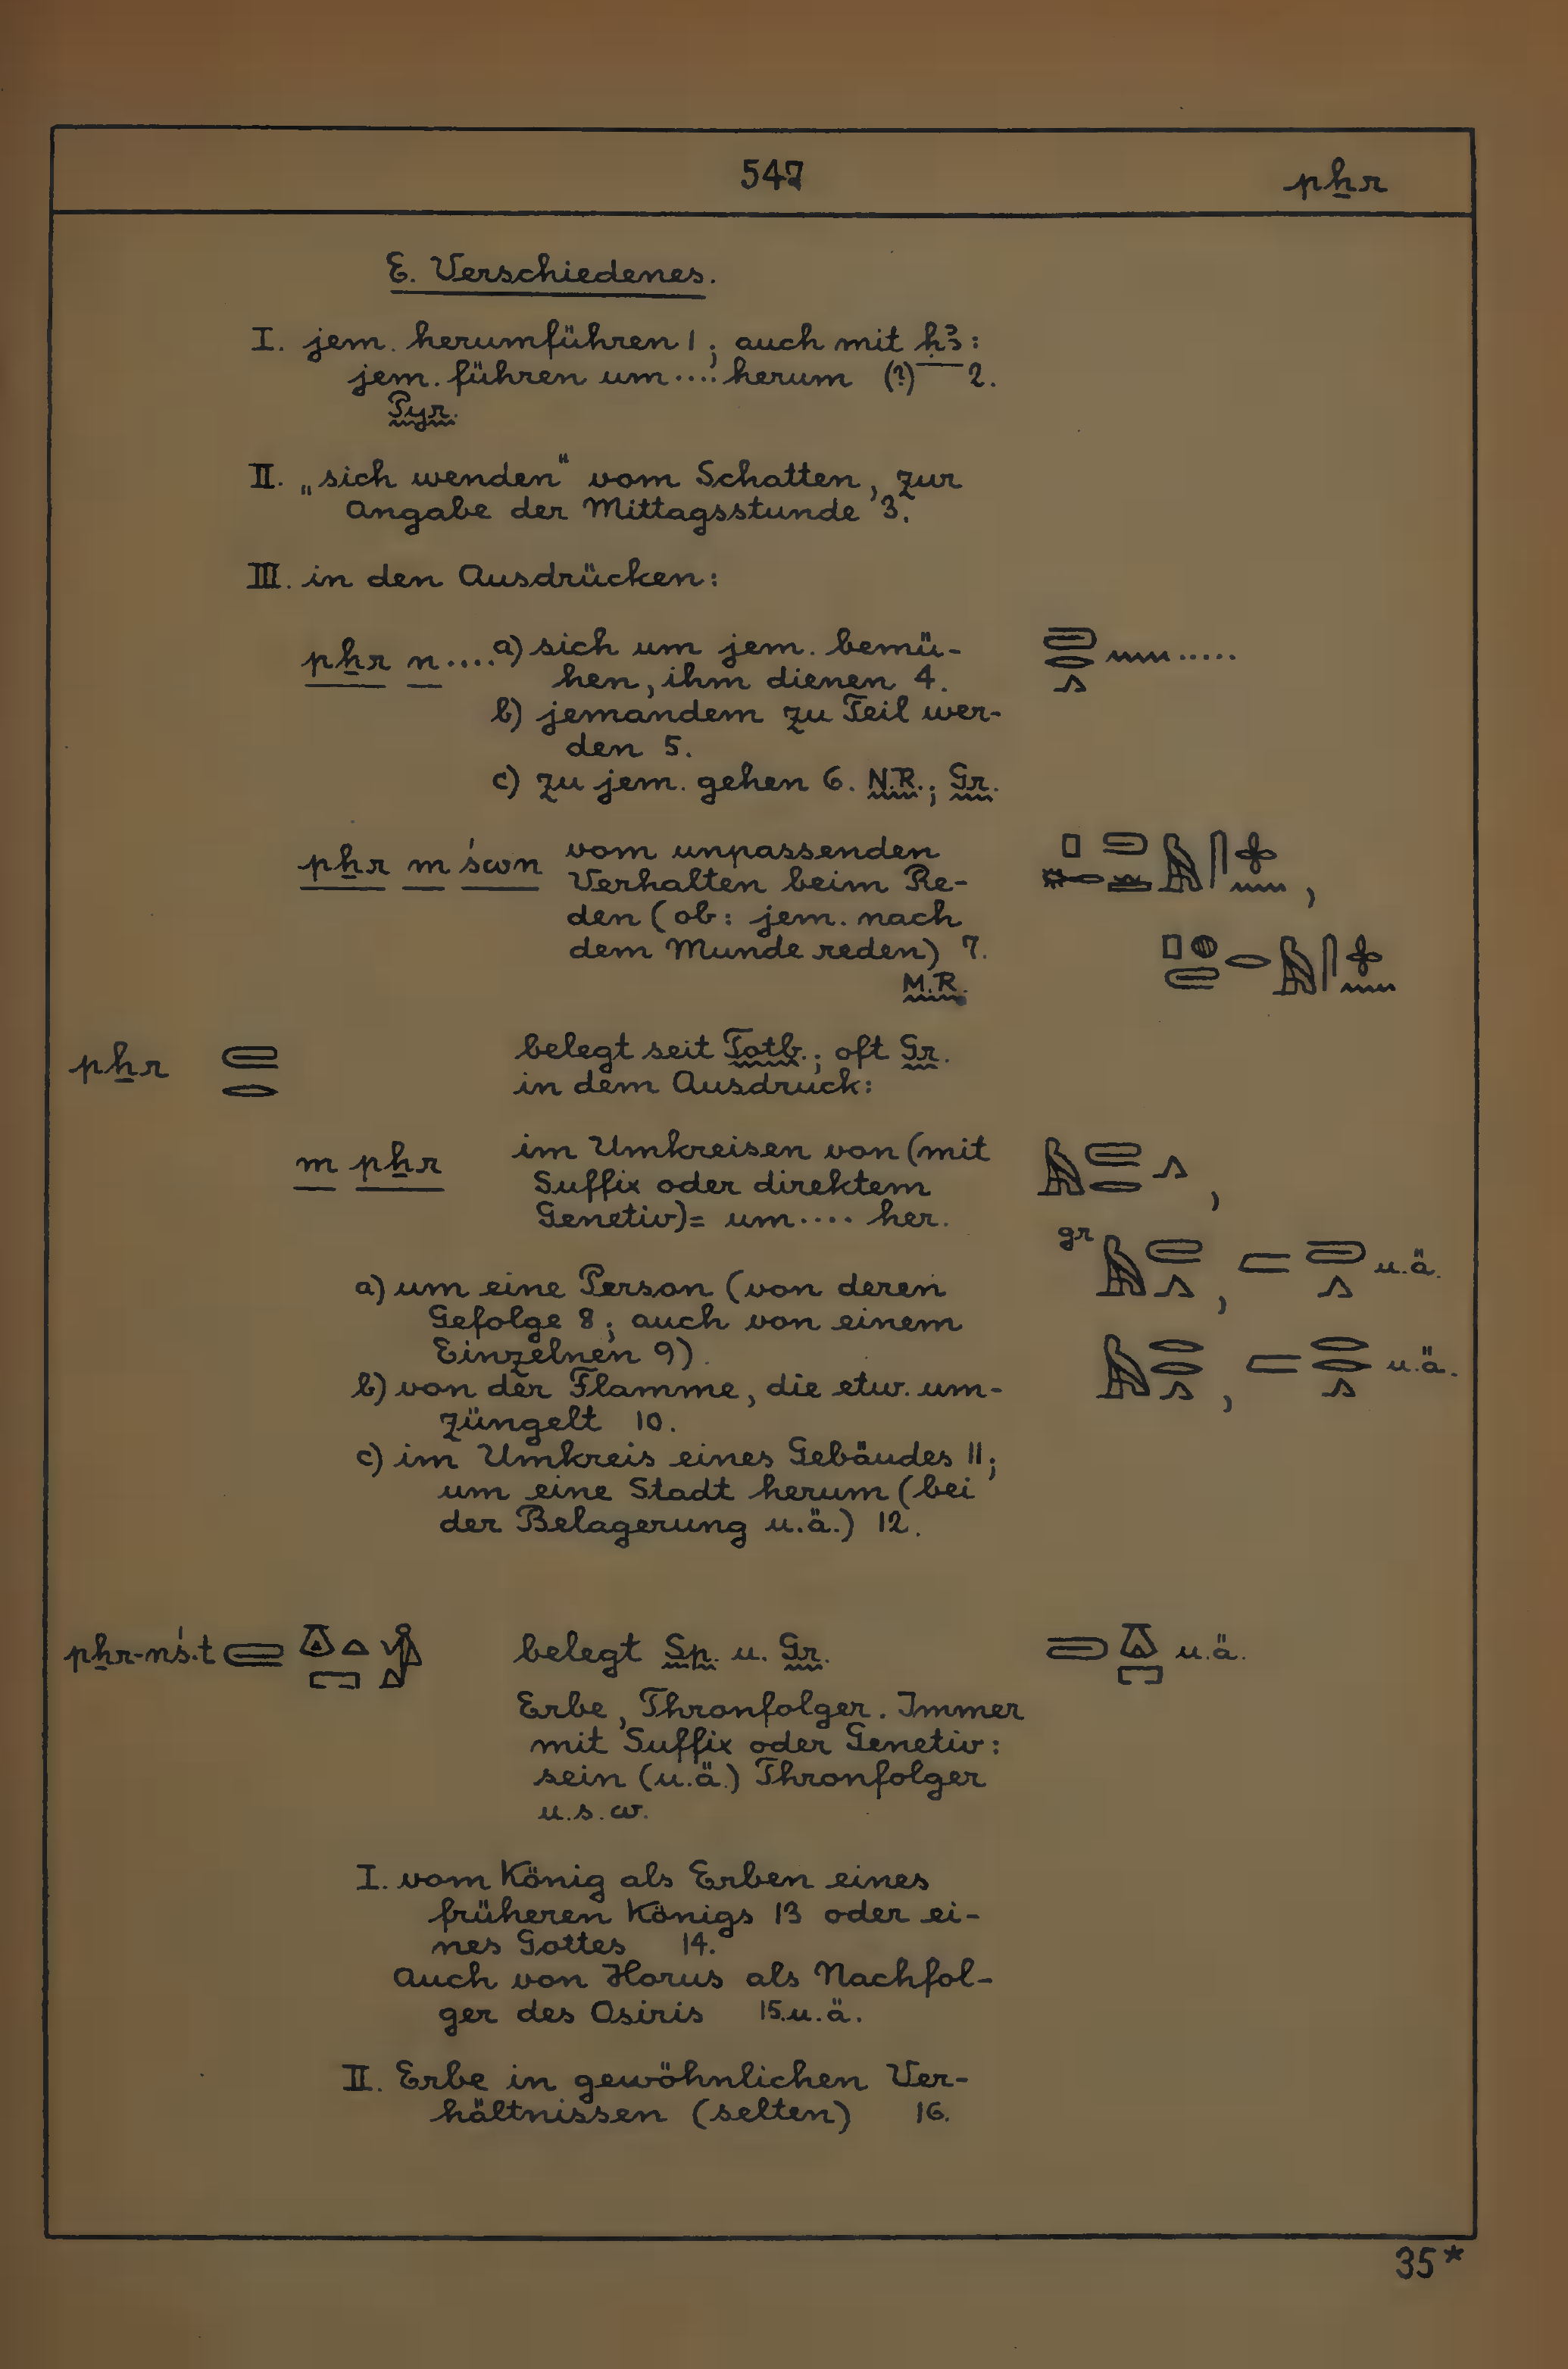 547 pẖr
E. Verschiedenes.
I. jem. herumführen 1; auch mit ḥꜣ:
jem. führen um.... herum (?) 2.
Pyr.
II. „sich wenden“ vom Schatten, zur
Angabe der Mittagsstunde 3.
III. in den Ausdrücken:
pẖr n .... a) sich um jem. bemü-
hen, ihm dienen 4.
b) jemandem zu Teil wer-
den 5.
c) zu jem. gehen 6. N.R.; Gr.
pẖr m śwn vom unpassenden
Verhalten beim Re-
den (ob: jem. nach
dem Munde reden) 7.
M.R.
pẖr belegt seit Totb.; oft Gr.
in dem Ausdruck:
m pẖr im Umkreisen von (mit
Suffix oder direktem
Genetiv) = um.... her.
gr
u.ä.
a) um eine Person (von deren
Gefolge 8; auch von einem
Einzelnen 9).
u.ä.
b) von der Flamme, die etw. um-
züngelt 10.
c) im Umkreis eines Gebäudes 11;
um eine Stadt herum (bei
der Belagerung u.ä.) 12.
pẖr-nś.t belegt Sp. u. Gr. u.ä.
Erbe, Thronfolger. Immer
mit Suffix oder Genetiv:
sein (u.ä.) Thronfolger
u.s.w.
I. vom König als Erben eines
früheren Königs 13 oder ei-
nes Gottes 14.
Auch von Horus als Nachfol-
ger des Osiris 15. u.ä.
II. Erbe in gewöhnlichen Ver-
hältnissen (selten) 16.
35*